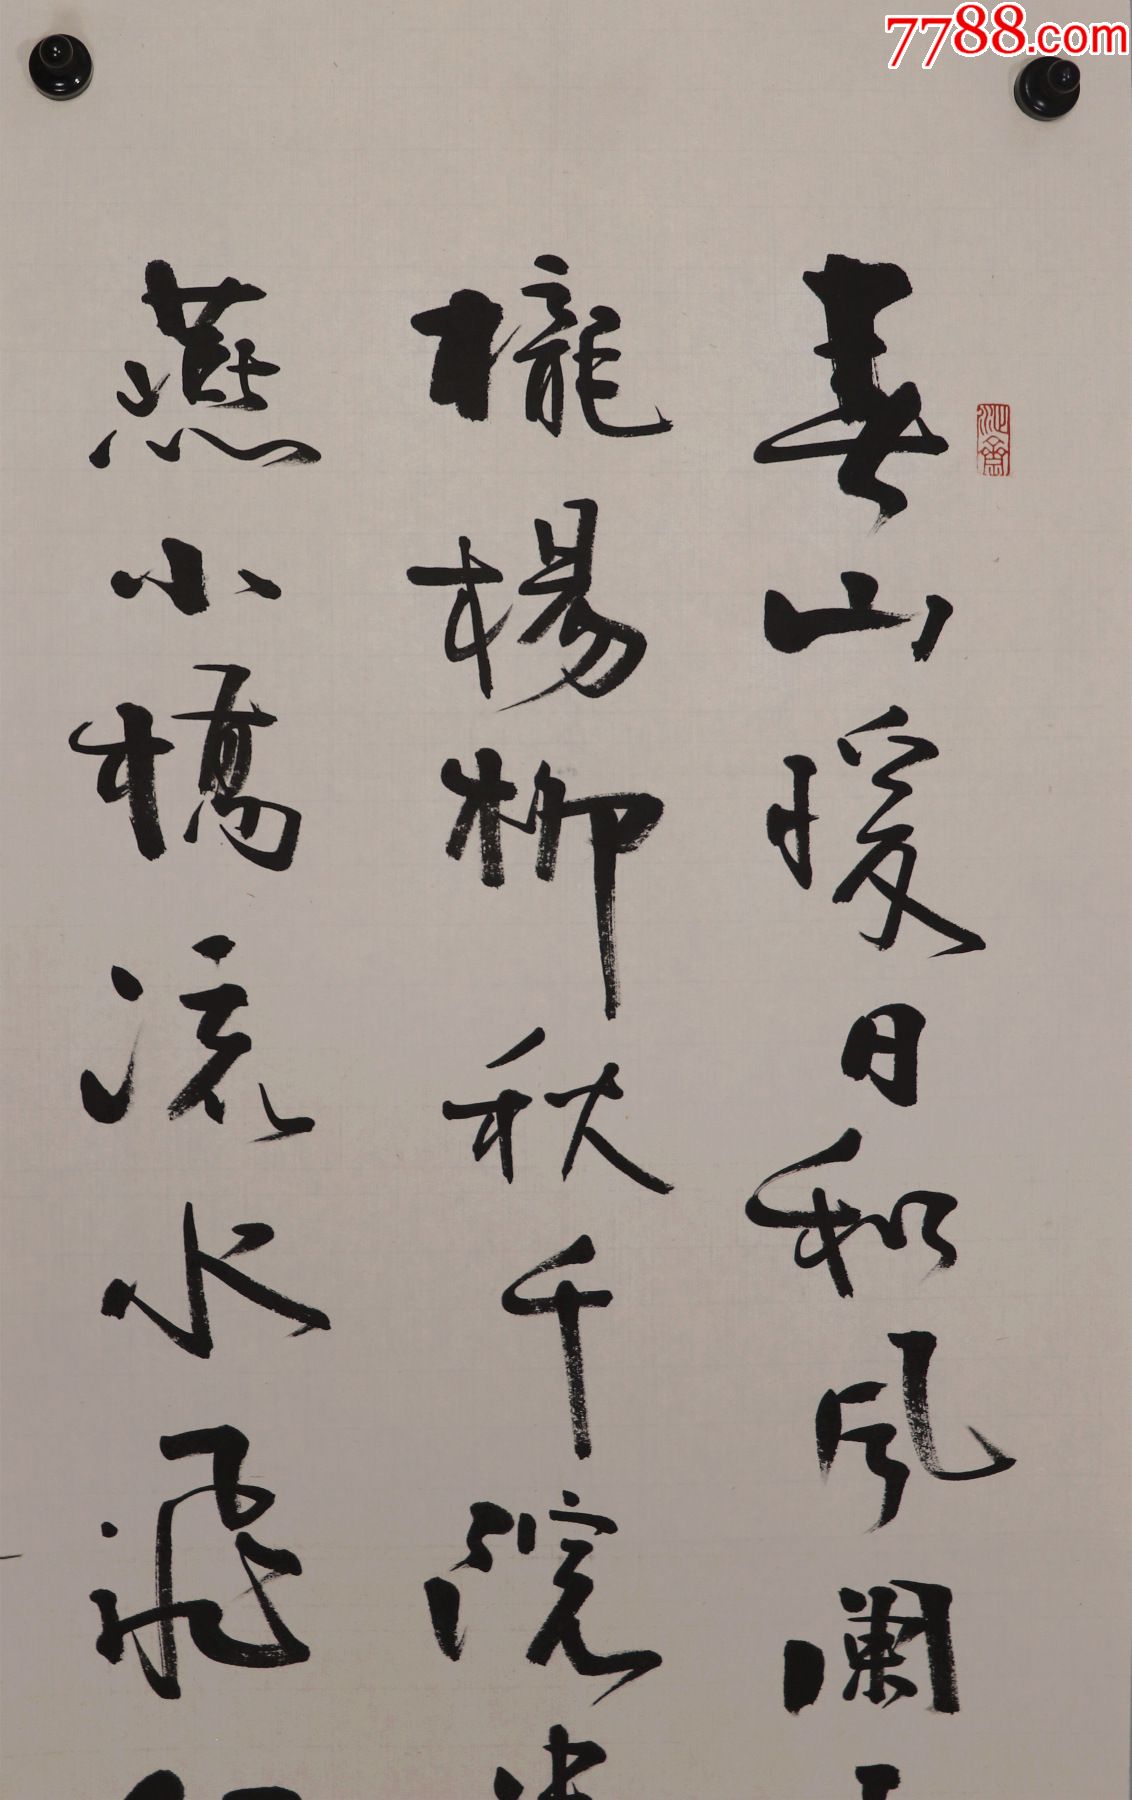 7788.com
春山暖日和風闌
櫳楊柳秋千院中
燕小橋流水飛紅